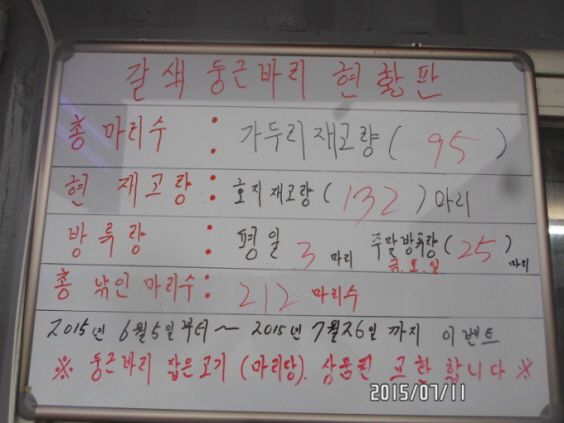 갈색 둥근바리 현황판
총 마리수 : 가두리재고량 ( 95 )
현 재고량 : 호지재고량 ( 132 ) 마리
방류량 : 평일 3 마리 주말방류량 ( 25 ) 마리
금.토.일
총 낚인 마리수 : 212 마리수
2015년 6월5일부터~ 2015년 7월26일 까지 이벤트
※ 둥근바리 잡은고기 (마리당). 상품권 교환 합니다 ※
2015/07/11